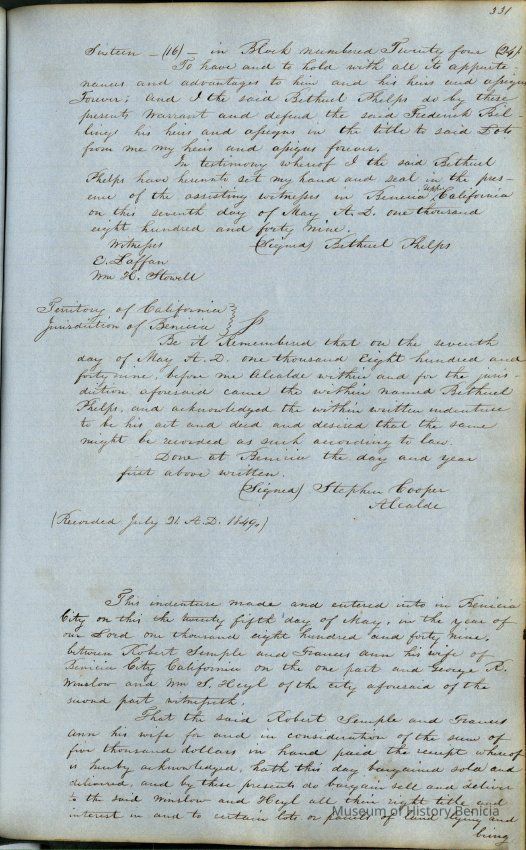 331
Sixteen - (16) - in Block numbered Twenty four (24).
To have and to hold with all its appurte-
nances and advantages to him and his heirs and assigns
Forever; and I the said Bethuel Phelps do by these
presents Warrant and defend the said Frederick Bil-
lings his heirs and assigns in the title to said Lots
from me my heirs and assigns forever.
In testimony whereof I the said Bethuel
Phelps have hereunto set my hand and seal in the pres-
ence of the assisting witnesses in Benicia Upper California
on this seventh day of May A.D. one thousand
eight hundred and forty nine.
Witnesses (Signed) Bethuel Phelps
C. Laffan
Wm H. Howell
Territory of California
Jurisdiction of Benicia
Be it Remembered that on the seventh
day of May A.D. one thousand Eight hundred and
forty nine, before me Alcalde within and for the juris-
diction aforesaid came the within named Bethuel
Phelps, and acknowledged the within written indenture
to be his act and deed and desired that the same
might be recorded as such according to law.
Done at Benicia the day and year
first above written.
(Signed) Stephen Cooper
Alcalde
(Recorded July 21. A.D. 1849,)
This indenture made and entered into in Benicia
City on this the twenty fifth day of May, in the year of
our Lord one thousand eight hundred and forty nine,
between Robert Semple and Frances Ann his wife of
Benicia City California on the one part and George R.
Winslow and Wm S. Heyl of the city aforesaid of the
second part witnesseth
That the said Robert Semple and Frances
Ann his wife for and in consideration of the sum of
five thousand dollars in hand paid the receipt whereof
is hereby acknowledged, hath this day bargained sold and
delivered, and by these presents do bargain sell and deliver
to the said Winslow and Heyl all their right title and
interest in and to certain lots or parcels of land lying and
being
Museum of History Benicia